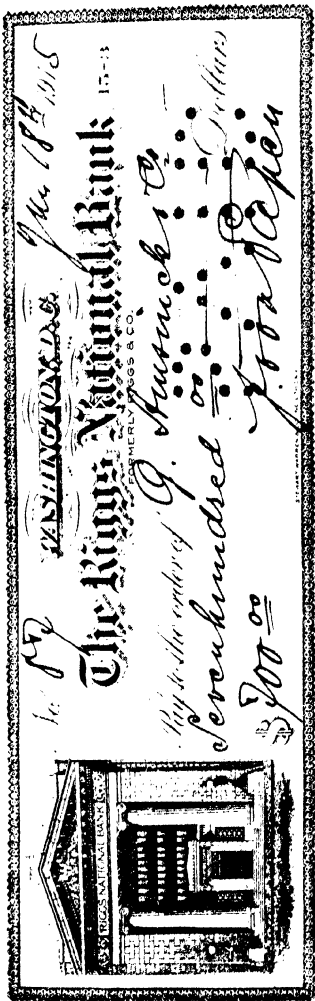 No. 87 WASHINGTON, D.C. Jan 18th 1915
The Riggs National Bank 15-3
FORMERLY RIGGS & CO.
Pay to the order of G. Amsinck & Co —
Seven hundred 00 Dollars
$700 00 F. von Papen
RIGGS NATIONAL BANK